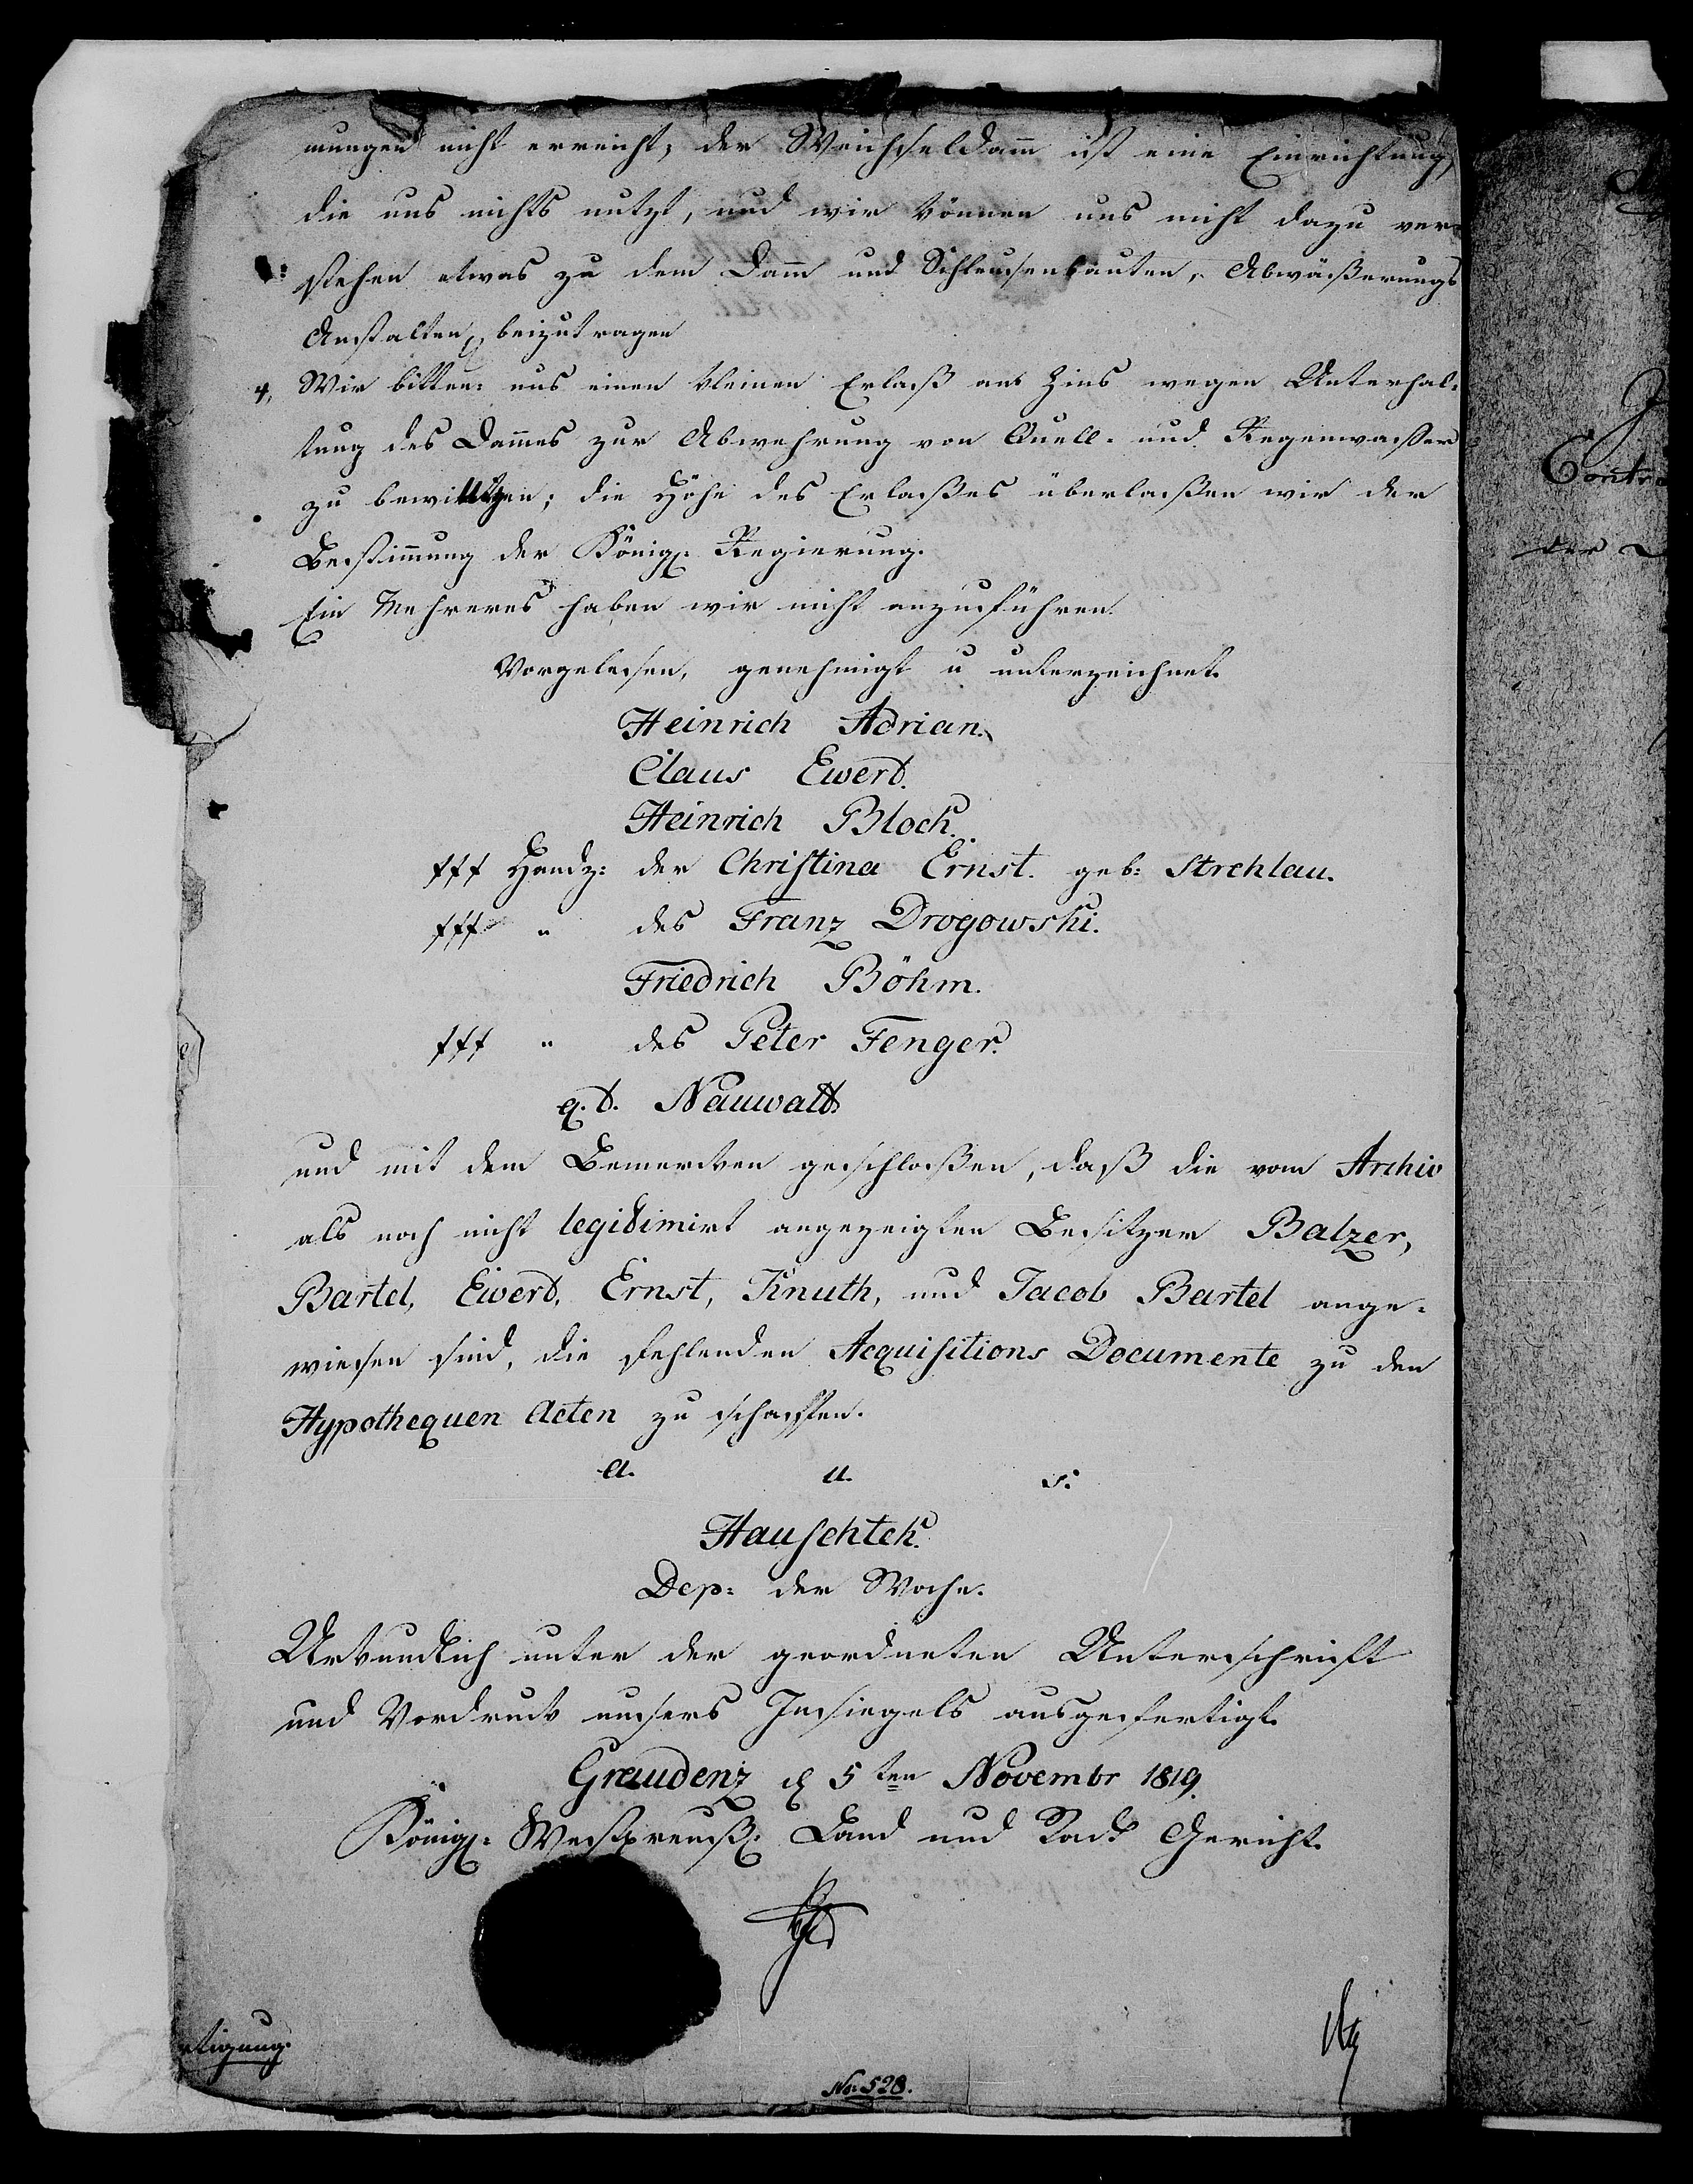 mungen nicht erreicht, der Weichseldam̄ ist eine Einrichtung,
die uns nichts nutzt, und wir können uns nicht dazu ver-
stehen etwas zu dem Dam̄ und Schleusenbauten, Abwäßerungs
Anstalten beizutragen
4, Wir bitten: uns einen kleinen Erlaß am Zins wegen Unterhal-
tung des Dam̄es zur Abwehrung von Quell- und Regenwaßer
zu bewilligen; die Höhe des Erlaßes überlaßen wir der
Bestim̄ung der Königl: Regierung.
Ein Mehreres haben wir nicht anzuführen.
Vorgelesen, genehmigt u unterzeichnet.
Heinrich Adrian.
Claus Ewert.
Heinrich Block.
fff Handz: der Christina Ernst. geb: Strehlau.
fff " des Franz Drogowski.
Friedrich Böhm.
fff " des Peter Fenger.
q. t. Nauwaldt
und mit dem Bemerken geschloßen, daß die vom Archiv
als noch nicht legitimirt angezeigten Besitzer Balzer,
Bartel, Ewert, Ernst, Knuth, und Jacob Bartel ange-
wiesen sind, die fehlenden Acquisitions Documente zu den
Hypothequen Acten zu schaffen.
a. u. s.
Hauschteck.
Dep: der Woche.
Urkundlich unter der geordneten Unterschrift
und Vordruck unsers Insiegels ausgefertigt.
Graudenz d 5ten Novembr 1819.
Königl: Westpreuß: Land und Stadt Gericht.
rtigung.
No: 528.
Contra
der